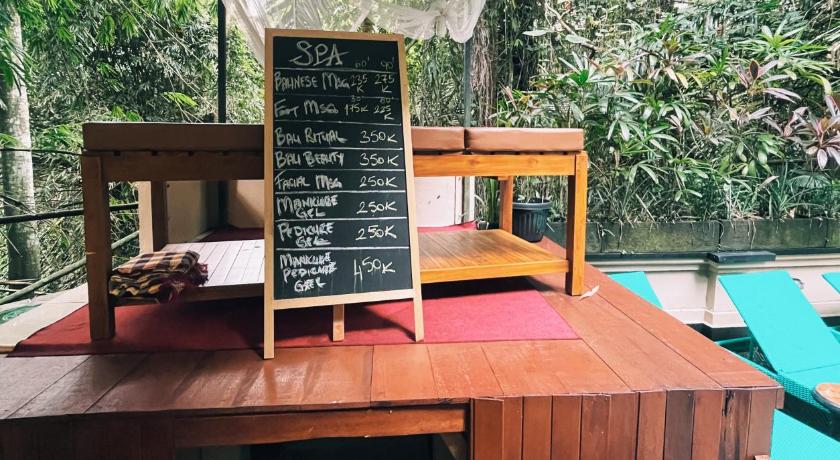 SPA 60' 90'
BALINESE MSG 235 K 275 K
30' 60'
FOOT MSG 175K 225 K
BALI RITUAL 350K
BALI BEAUTY 350K
FACIAL MSG 250K
MANICURE GEL 250K
PEDICURE GEL 250K
MANICURE
PEDICURE 450K
GEL